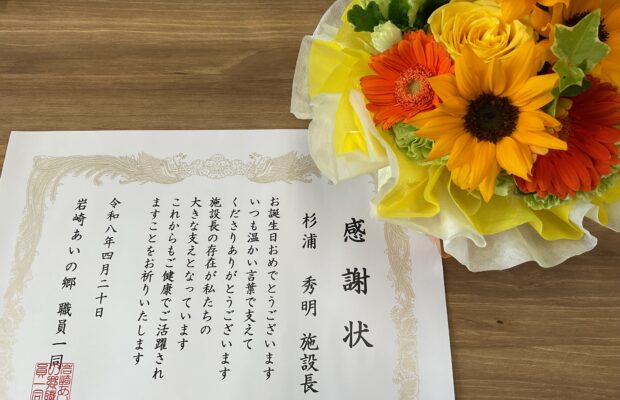 感謝状
杉浦 秀明 施設長
お誕生日おめでとうございます
いつも温かい言葉で支えて
くださりありがとうございます
施設長の存在が私たちの
大きな支えとなっています
これからもご健康でご活躍され
ますことをお祈りいたします
令和八年四月二十日
岩崎あいの郷 職員一同